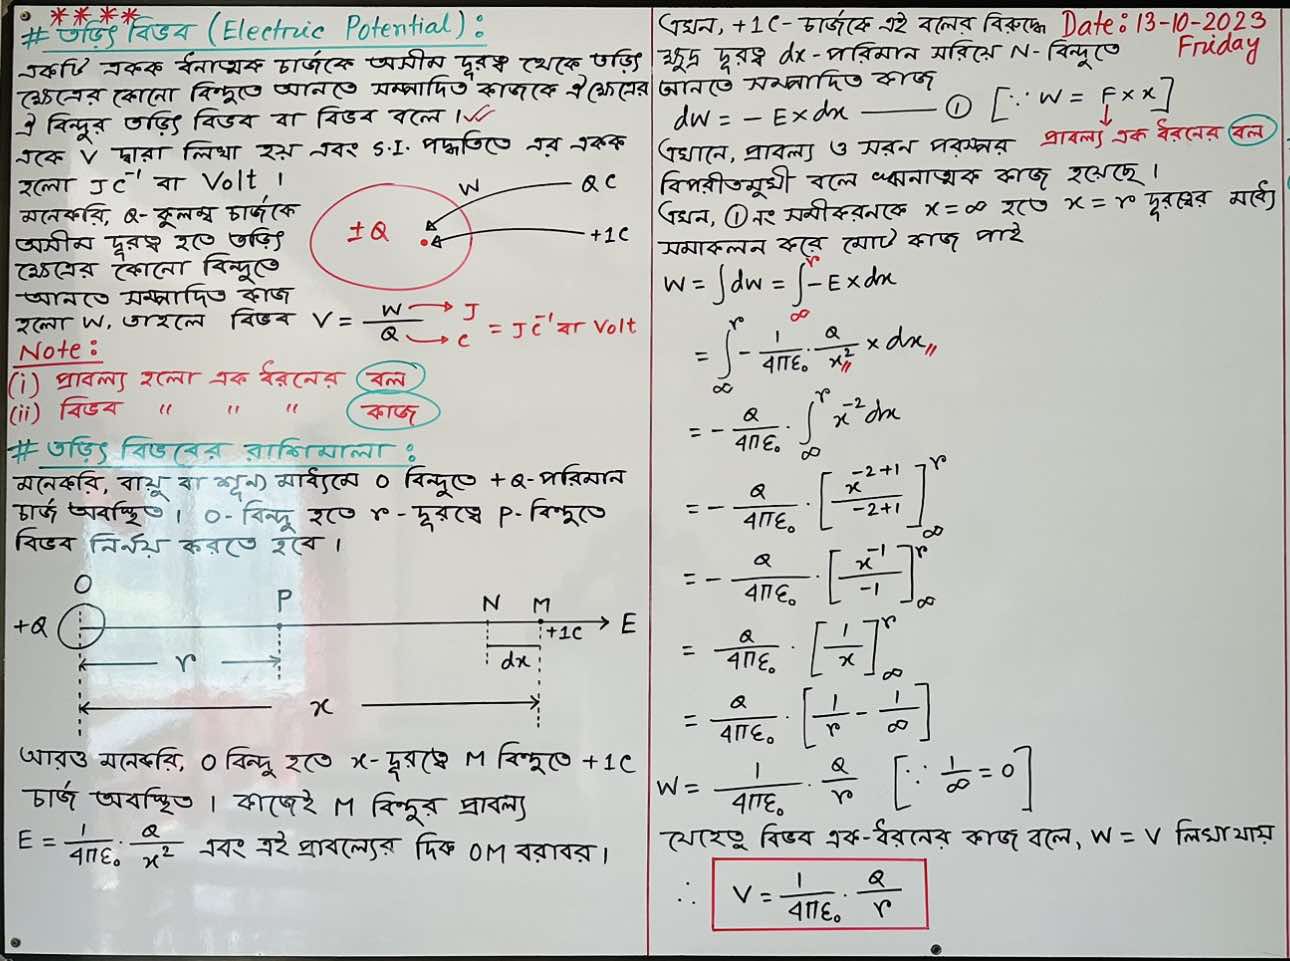 ****
# তড়িৎ বিভব (Electric Potential) :
একটি একক ধনাত্মক চার্জকে অসীম দূরত্ব থেকে তড়িৎ
ক্ষেত্রের কোনো বিন্দুতে আনতে সম্পাদিত কাজকে ঐ ক্ষেত্রের
ঐ বিন্দুর তড়িৎ বিভব বা বিভব বলে।
একে V দ্বারা লিখা হয় এবং S.I. পদ্ধতিতে এর একক
হলো JC⁻¹ বা Volt ।
মনেকরি, Q- কুলম্ব চার্জকে
অসীম দূরত্ব হতে তড়িৎ
ক্ষেত্রের কোনো বিন্দুতে
আনতে সম্পাদিত কাজ
হলো W, তাহলে বিভব V = W/Q = JC⁻¹ বা Volt
W → J
Q → C
±Q
W
QC
+1C
Note :
(i) প্রাবল্য হলো এক ধরনের বল
(ii) বিভব " " " কাজ
# তড়িৎ বিভবের রাশিমালা :
মনেকরি, বায়ু বা শূন্য মাধ্যমে O বিন্দুতে +Q-পরিমান
চার্জ অবস্থিত। O- বিন্দু হতে r - দূরত্বে P- বিন্দুতে
বিভব নির্নয় করতে হবে।
O P N M
+Q +1C E
r dx
x
আরও মনেকরি, O বিন্দু হতে x-দূরত্বে M বিন্দুতে +1C
চার্জ অবস্থিত। কাজেই M বিন্দুর প্রাবল্য
E = 1/4πε₀ · Q/x² এবং এই প্রাবল্যের দিক OM বরাবর।
এখন, +1C- চার্জকে এই বলের বিরুদ্ধে
Date: 13-10-2023
Friday
ক্ষুদ্র দূরত্ব dx-পরিমান সরিয়ে N- বিন্দুতে
আনতে সম্পাদিত কাজ
dW = - E × dx —— ① [∵ W = F × x]
প্রাবল্য এক ধরনের বল
এখানে, প্রাবল্য ও সরন পরস্পর
বিপরীতমুখী বলে ঋনাত্মক কাজ হয়েছে।
এখন, ① নং সমীকরনকে x = ∞ হতে x = r দূরত্বের মধ্যে
সমাকলন করে মোট কাজ পাই
W = ∫dW = ∫_∞^r - E × dx
= ∫_∞^r - 1/4πε₀ · Q/x² × dx
= - Q/4πε₀ · ∫_∞^r x⁻² dx
= - Q/4πε₀ · [x⁻²⁺¹/-2+1]_∞^r
= - Q/4πε₀ · [x⁻¹/-1]_∞^r
= Q/4πε₀ · [1/x]_∞^r
= Q/4πε₀ · [1/r - 1/∞]
W = 1/4πε₀ · Q/r [∵ 1/∞ = 0]
যেহেতু বিভব এক-ধরনের কাজ বলে, W = V লিখা যায়
∴ V = 1/4πε₀ · Q/r